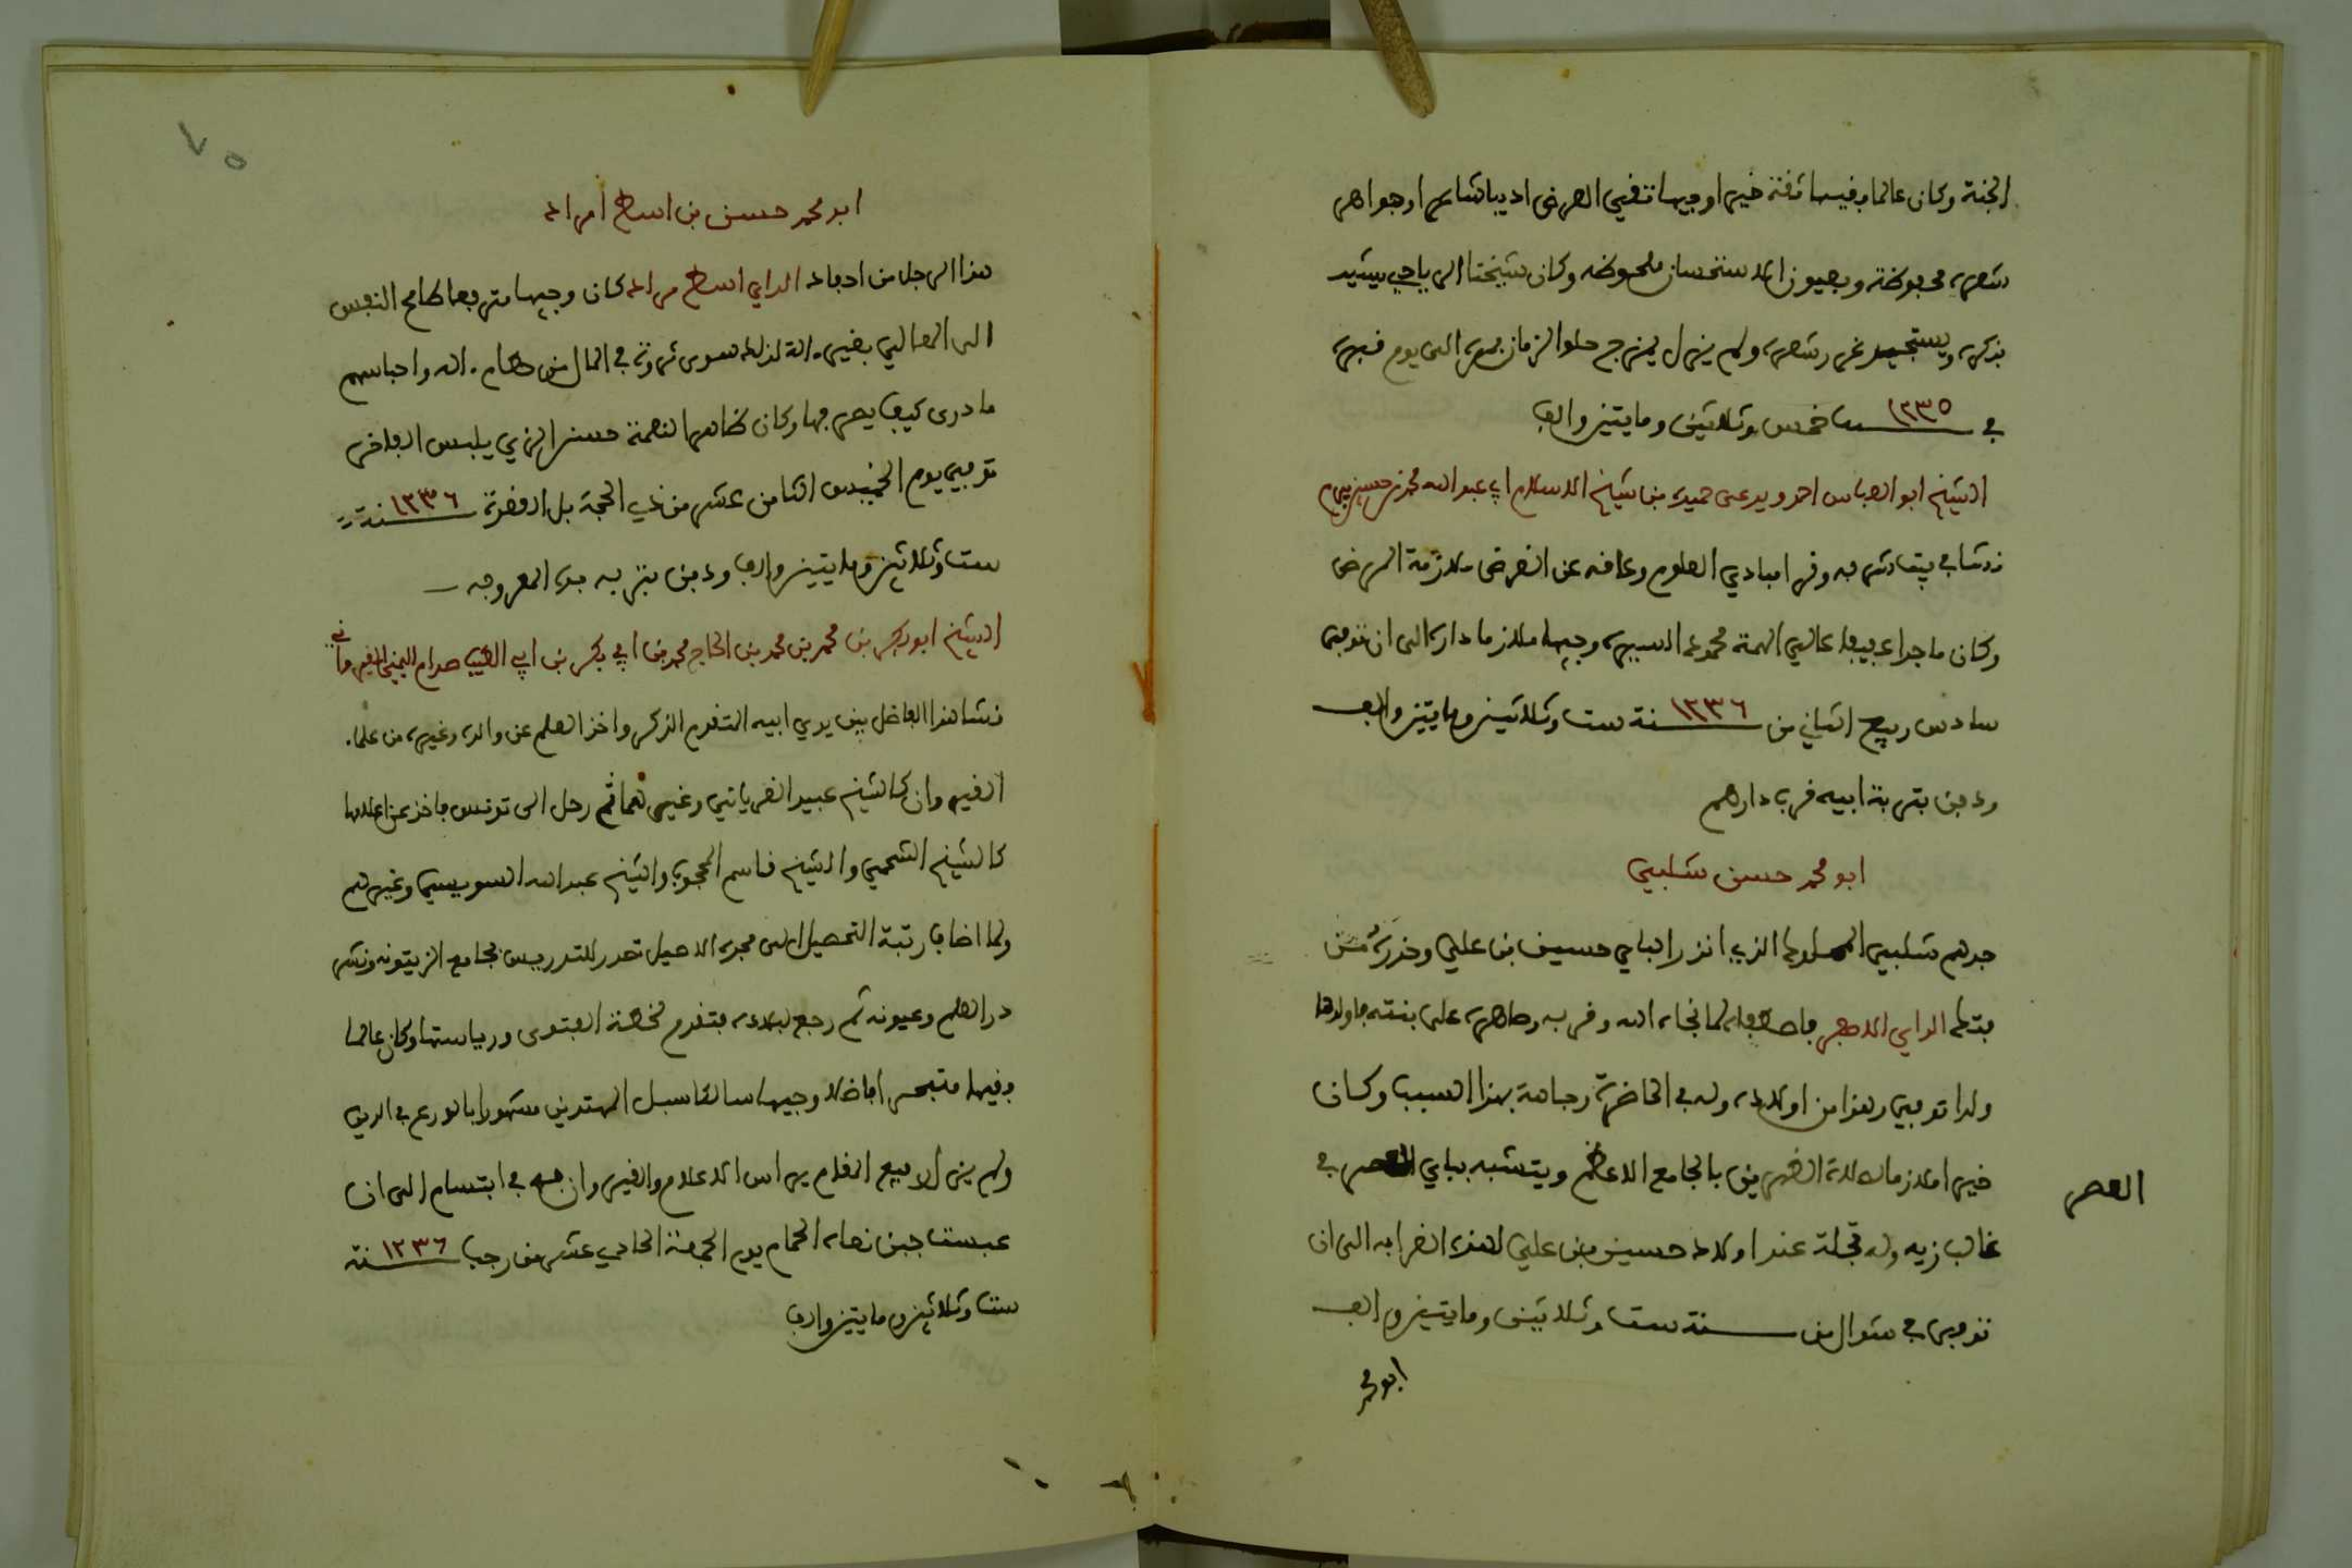 الجنة وكان عالما فقيها ثقة خيرا وجيها نقي العرض اديبا شاعرا وجواهر
شعره محفوظة وبعيون الاستحسان ملحوظه وكان شيخنا الرياحي يشيد
بذكره ويستجيد غرر شعره ولم يزل يمزج حلو الزمان بمره الى يوم قبره
في ١٢٣٥ سنة خمس وثلاثين ومايتين والف
الشيخ ابو العباس احمد ويدعى حميده بن شيخ الاسلام ابي عبد الله محمد بن حسين بيرم
نشا في بيت شرفه وقرا مبادي العلوم وعاقه عن الغرض ملازمة المرض
وكان ماجدا عفيفا عالي الهمة محمود السيره وجيها ملازما داره الى ان توفي
سادس ربيع الثاني من ١٢٣٦ سنة ست وثلاثين ومايتين والف
ودفن بتربة ابيه قرب دارهم
ابو محمد حسن شلبي
جدهم شلبي المملوك الذي انذر الباي حسين بن علي وحذره من
فتك الداي الاصفر فاصطفاه لما نجاه الله وقربه وصاهره على بنته فاولدها
ولدا توفي وهذا من اولاده وله في الحاضرة وجاهة بهذا السبب وكان
خيرا ملازما لصلاة الفريضة بالجامع الاعظم ويتشبه بباي العصر في
العصر
غالب زيه وله تجلة عند اولاد حسين بن علي لهذه القرابه الى ان
توفي في شوال من سنة ست وثلاثين ومايتين والف
ابو محمد
٧٥
ابو محمد حسن بن اسطا مراد
هذا الرجل من احفاد الداي اسطا مراد كان وجيها مترفعا طامح النفس
الى المعالي بغير الة لذلك سوى ثروة في المال من حطام اله واحباسهم
ما درى كيف يصرفها وكان ظاهر النعمة حسن الزي يلبس الفاخر
توفي يوم الخميس الثامن عشر من ذي الحجة بل القعدة ١٢٣٦ سنة
ست وثلاثين ومايتين والف ودفن بتربه جده المعروفه
الشيخ ابو بكر بن محمد بن محمد بن الحاج محمد بن ابي بكر بن ابي الطيب صدام اليمني القيرواني
نشا هذا الفاضل بين يدي ابيه المتقدم الذكر واخذ العلم عن والده وغيره من علماء
القيروان كالشيخ عبيد الغرياني وغيرهما ثم رحل الى تونس فاخذ عن اعلامها
كالشيخ الشحمي والشيخ قاسم المحجوب والشيخ عبد الله السويسي وغيرهم
ولما اضاف رتبة التحصيل الى مجده الاصيل تصدر للتدريس بجامع الزيتونه ونشر
در العلم وعيونه ثم رجع لبلاده فتقدم لخطة الفتوى ورياستها وكان عالما
فقيها متبحرا فاضلا وجيها سالكا سبل المهتدين مشهورا بالورع في الدين
ولم يزل رفيع المقام يراس الاعلام والقيروان به في ابتسام الى ان
عبست حين نعاه الحمام يوم الجمعة الحادي عشر من رجب ١٢٣٦ سنة
ست وثلاثين ومايتين والف